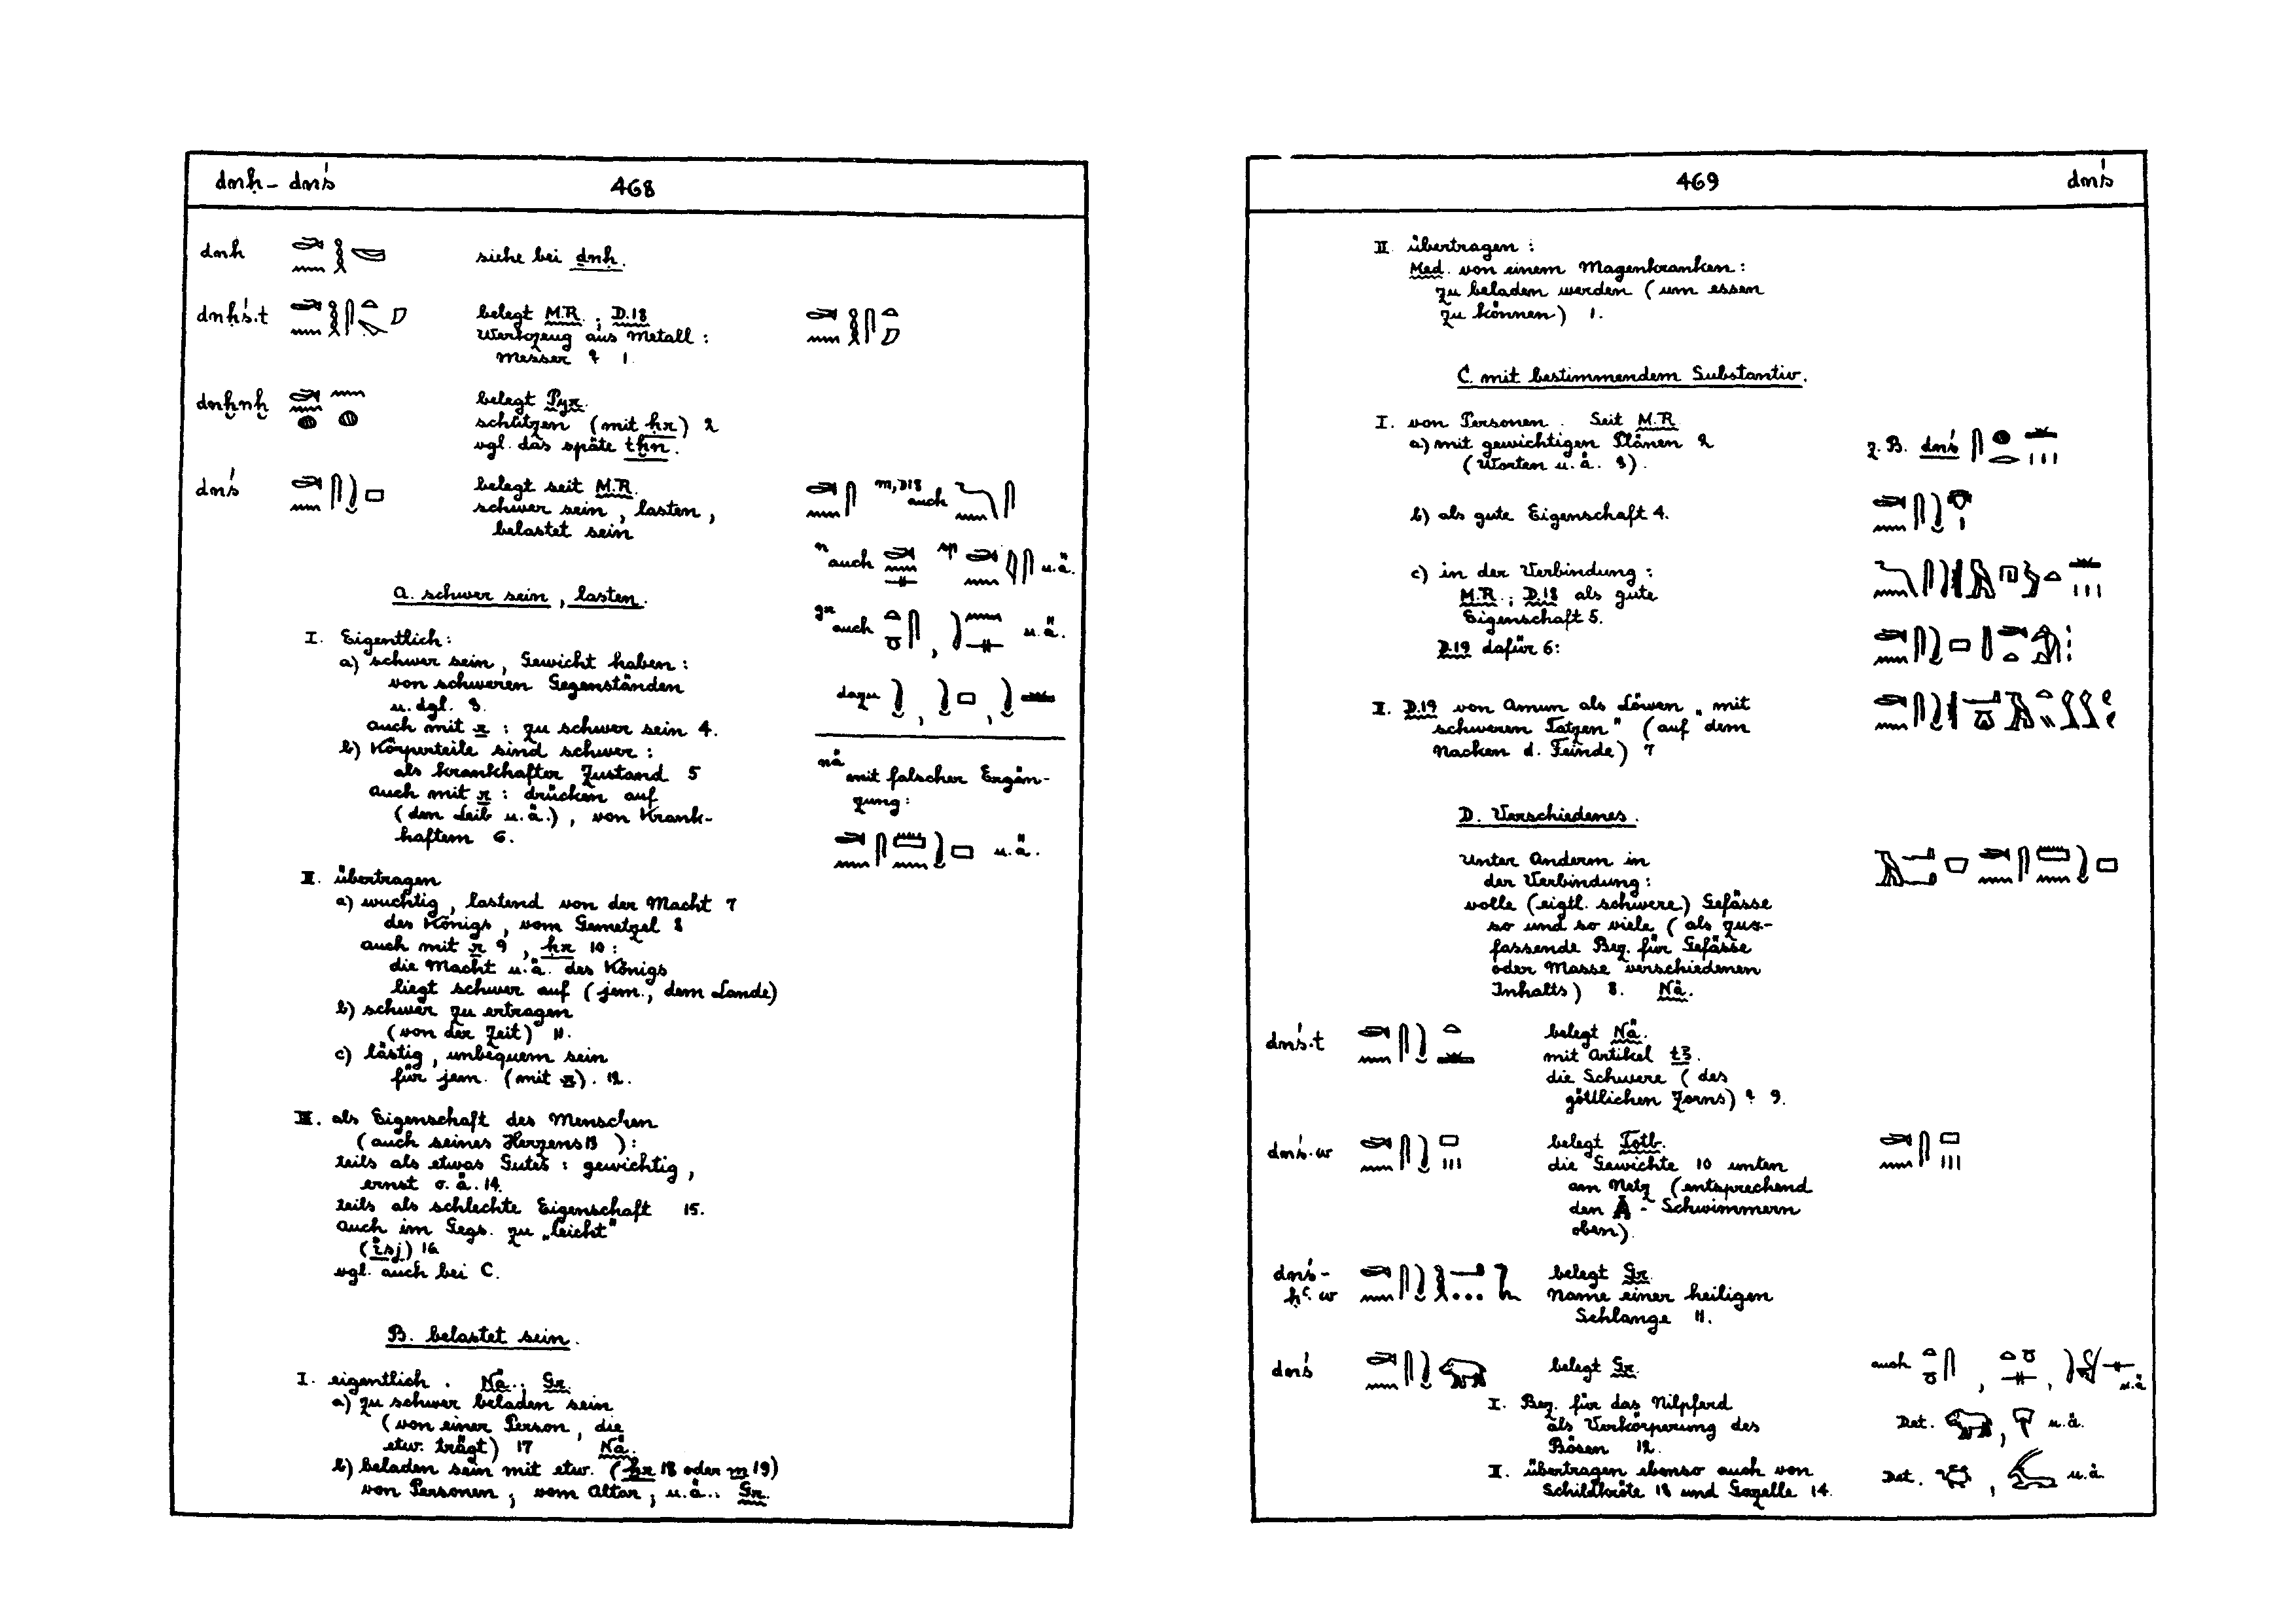 dnḥ – dnś 468
dnḥ siehe bei dnḥ.
dnḥś.t belegt M.R.; D.18
Werkzeug aus Metall:
Messer ? 1.
dnḫnḫ belegt Pyr.
schützen (mit ḥr) 2
vgl. das späte tḥn.
dnś belegt seit M.R.
schwer sein, lasten,
belastet sein
m, D18 auch
n auch sp u.ä.
gr auch , u.ä.
dazu , ,
nä mit falscher Ergän-
zung:
u.ä.
A. schwer sein, lasten.
I. Eigentlich:
a) schwer sein, Gewicht haben:
von schweren Gegenständen
u. dgl. 3.
auch mit r: zu schwer sein 4.
b) Körperteile sind schwer:
als krankhafter Zustand 5
auch mit r: drücken auf
(den Leib u.ä.), von Krank-
haftem 6.
II. übertragen
a) wuchtig, lastend von der Macht 7
des Königs, vom Gemetzel 8
auch mit r 9, ḥr 10:
die Macht u.ä. des Königs
liegt schwer auf (jem., dem Lande)
b) schwer zu ertragen
(von der Zeit) 11.
c) lästig, unbequem sein
für jem. (mit n). 12.
III. als Eigenschaft des Menschen
(auch seines Herzens 13):
teils als etwas Gutes: gewichtig,
ernst o.ä. 14.
teils als schlechte Eigenschaft 15.
auch im Gegs. zu „leicht"
(isj) 16
vgl. auch bei C.
B. belastet sein.
I. eigentlich. Nä.; Gr.
a) zu schwer beladen sein
(von einer Person, die
etw. trägt) 17 Nä.
b) beladen sein mit etw. (ḥr 18 oder m 19)
von Personen, vom Altar, u.ä.. Gr.
469 dnś
II. übertragen:
Med. von einem Magenkranken:
zu beladen werden (um essen
zu können) 1.
C. mit bestimmendem Substantiv.
I. von Personen. Seit M.R
a) mit gewichtigen Plänen 2 z.B. dnś
(Worten u.ä. 3).
b) als gute Eigenschaft 4.
c) in der Verbindung:
M.R.; D.18 als gute
Eigenschaft 5.
D.19 dafür 6:
II. D.19 von Amun als Löwen „mit
schweren Tatzen" (auf dem
Nacken d. Feinde) 7
D. Verschiedenes.
Unter Anderm in
der Verbindung:
volle (eigtl. schwere) Gefässe
so und so viele (als zus-
fassende Bez. für Gefässe
oder Masse verschiedenen
Inhalts) 8. Nä.
dnś.t belegt Nä.
mit Artikel t3.
die Schwere (des
göttlichen Zorns) ? 9.
dnś.w belegt Totb.
die Gewichte 10 unten
am Netz (entsprechend
den - Schwimmern
oben).
dnś-
ḥʿ.w belegt Gr.
Name einer heiligen
Schlange 11.
dnś belegt Gr. auch , , u.ä
I. Bez. für das Nilpferd
als Verkörperung des Det. , u.ä.
Bösen 12.
II. übertragen ebenso auch von Det. , u.ä.
Schildkröte 13 und Gazelle 14.